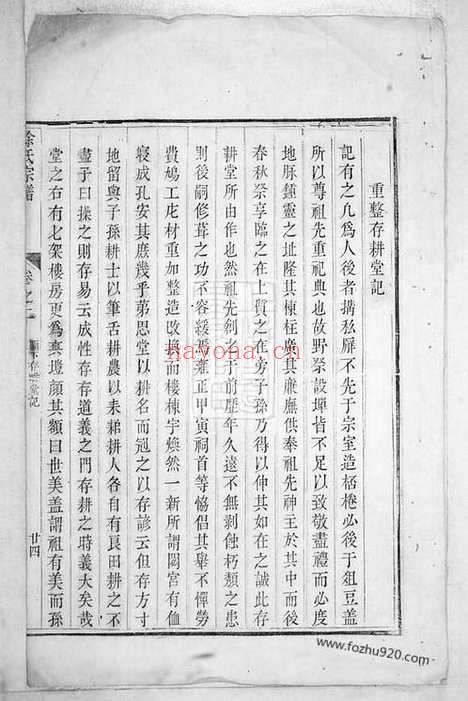 重整存耕堂記
記有之凡為人後者搆私廨不先于宗室造栝棬必後于俎豆蓋
所以尊祖先重祀典也故野祭設墠皆不足以致敬盡禮而必度
地脉鍾靈之址隆其棟柱廣其廊廡供奉祖先神主於其中而後
春秋祭享臨之在上質之在旁子孫乃得以伸其如在之誠此存
耕堂所由作也然祖先剏之于前歷年久遠不無剥蝕朽纇之患
則後嗣修葺之功不容緩焉雍正甲寅祠首等恊倡其舉不憚勞
費鳩工庀材重加整造改換而樓棟宇煥然一新所謂閟宮有侐
寢成孔安其庶幾乎第思堂以耕名而冠之以存諺云但存方寸
地留與子孫耕士以筆舌耕農以耒耜耕人各自有良田耕之不
盡子曰操之則存易云成性存存道義之門存耕之時義大矣哉
堂之右有七架樓房更為奂塏顔其額曰世美蓋謂祖有美而孫
徐氏宗譜
卷之一
存耕堂記
廿四
nayona.cn
www.fozhu920.com